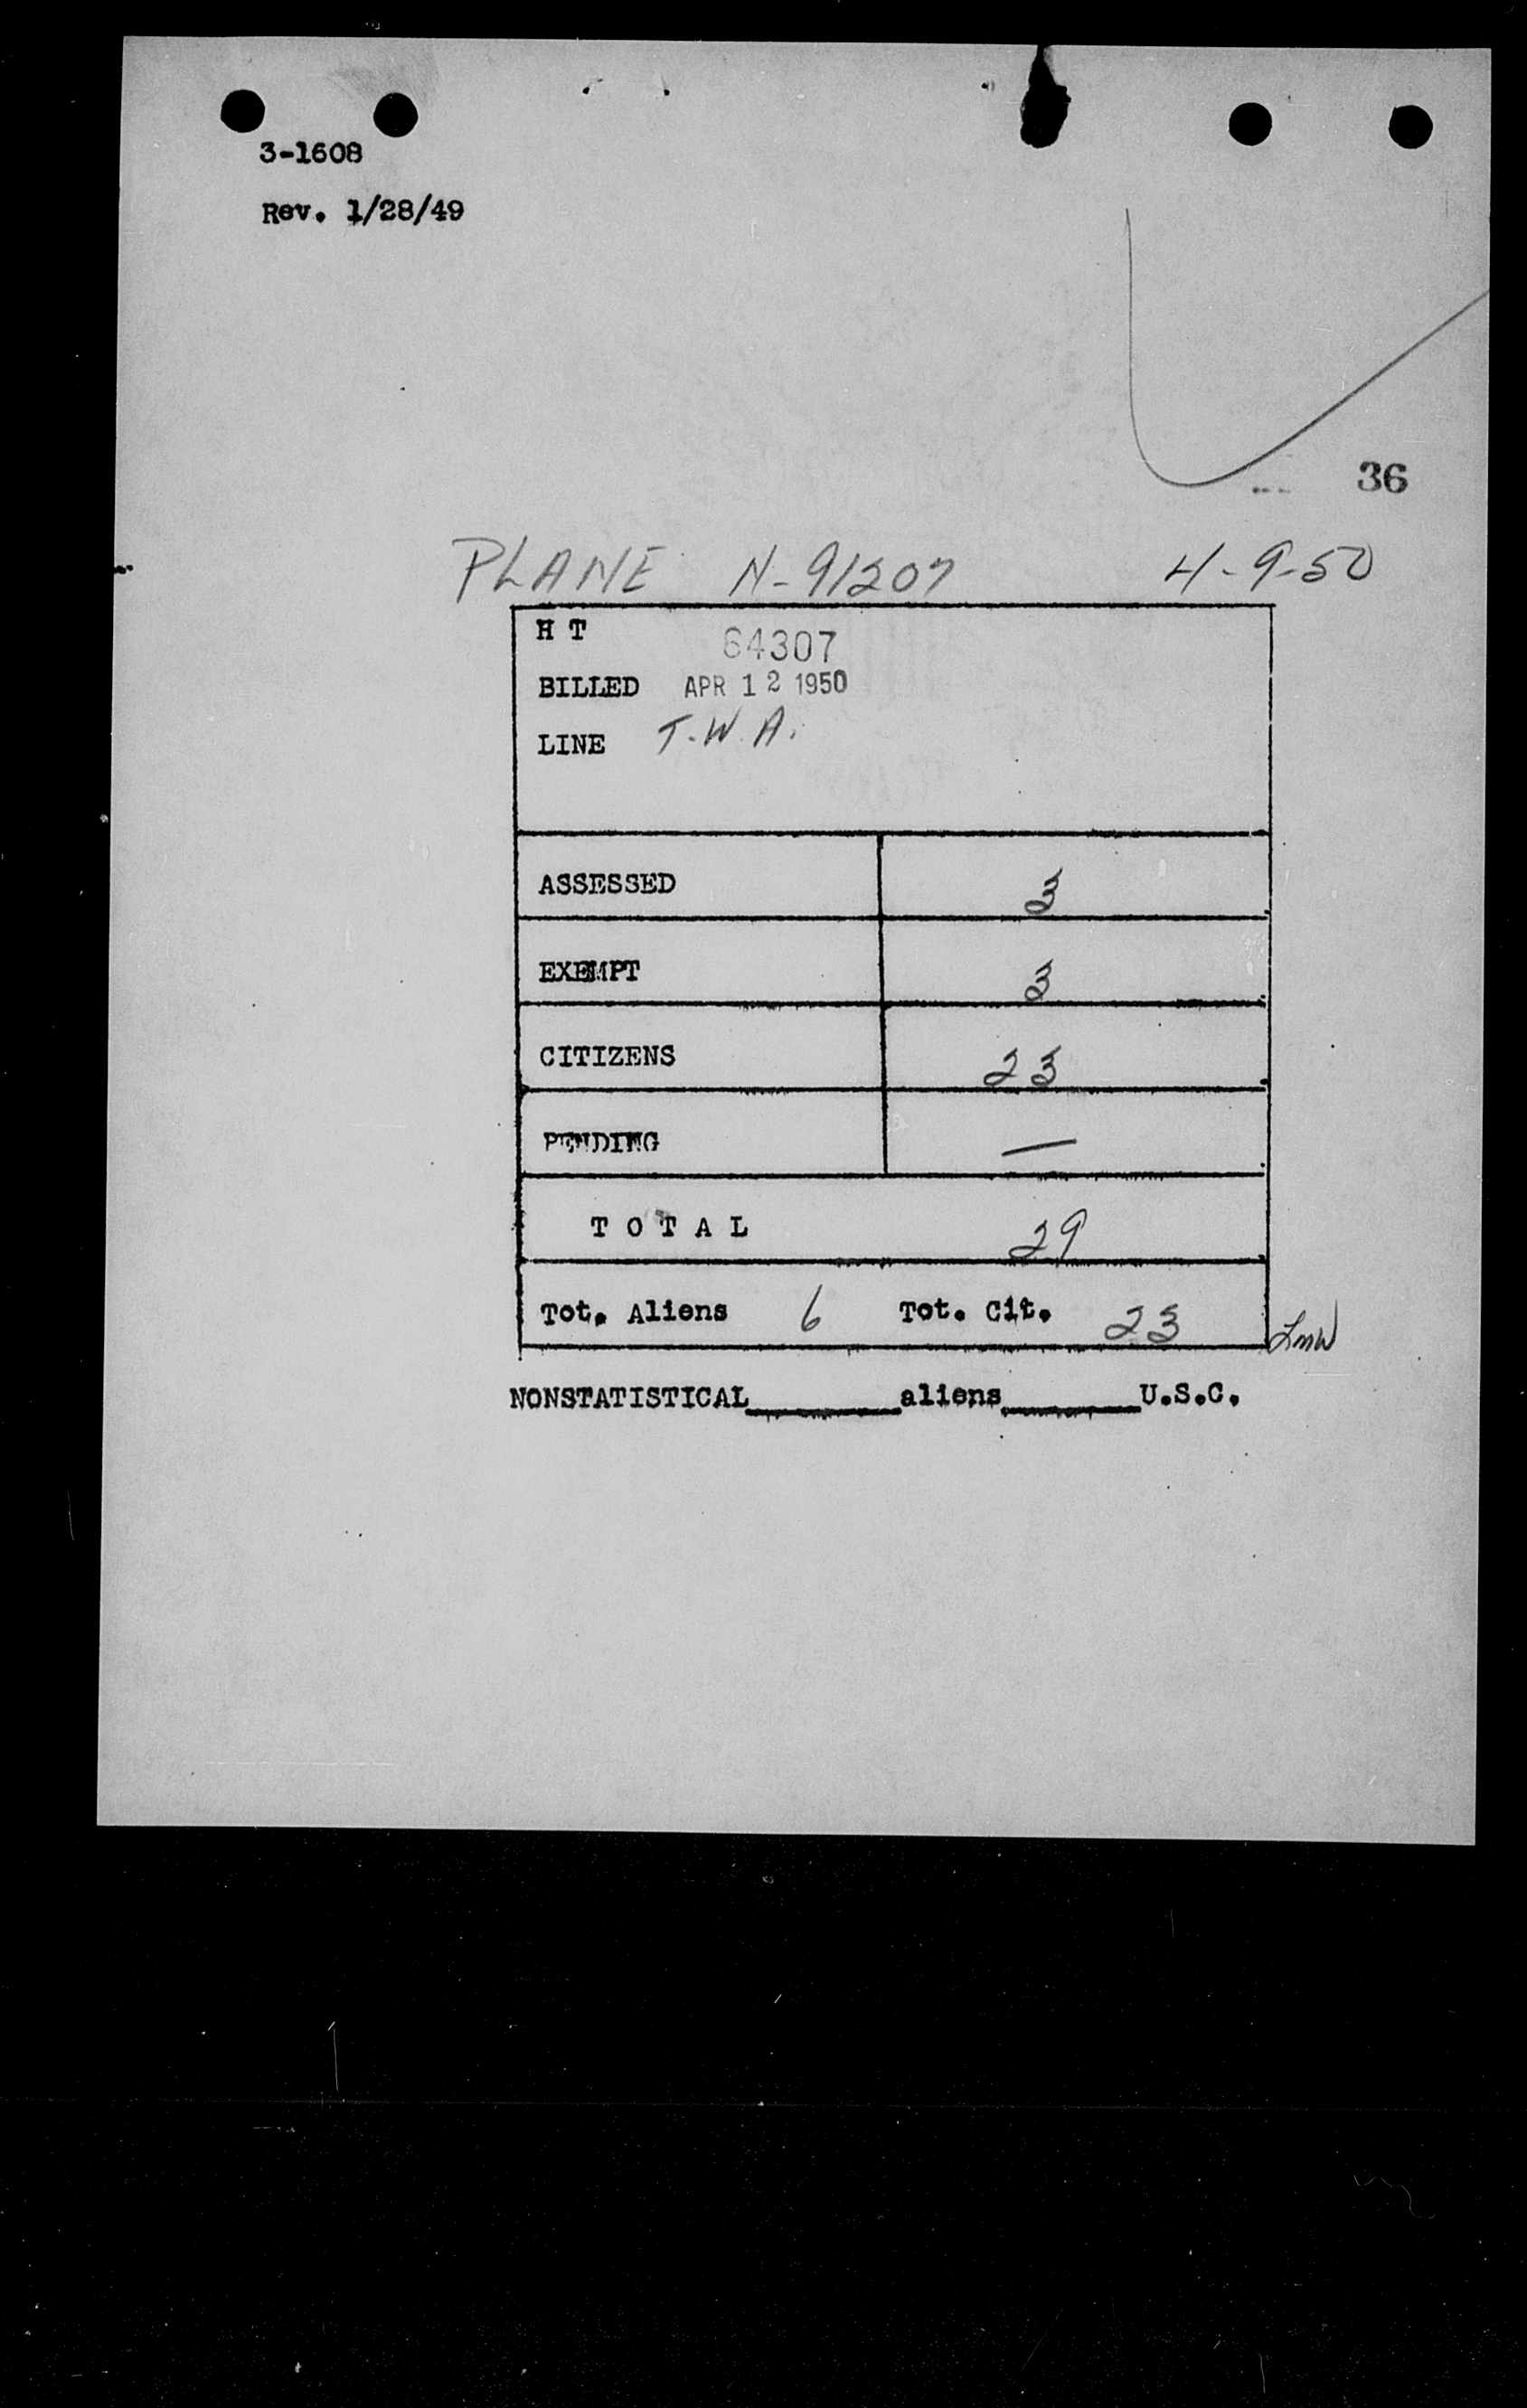 3-1608
Rev. 1/28/49
36
PLANE N-91207 4-9-50
H T 64307
BILLED APR 12 1950
LINE T.W.A.
ASSESSED 3
EXEMPT 3
CITIZENS 23
PENDING —
TOTAL 29
Tot. Aliens 6 Tot. Cit. 23 LMW
NONSTATISTICAL________aliens________U.S.C.